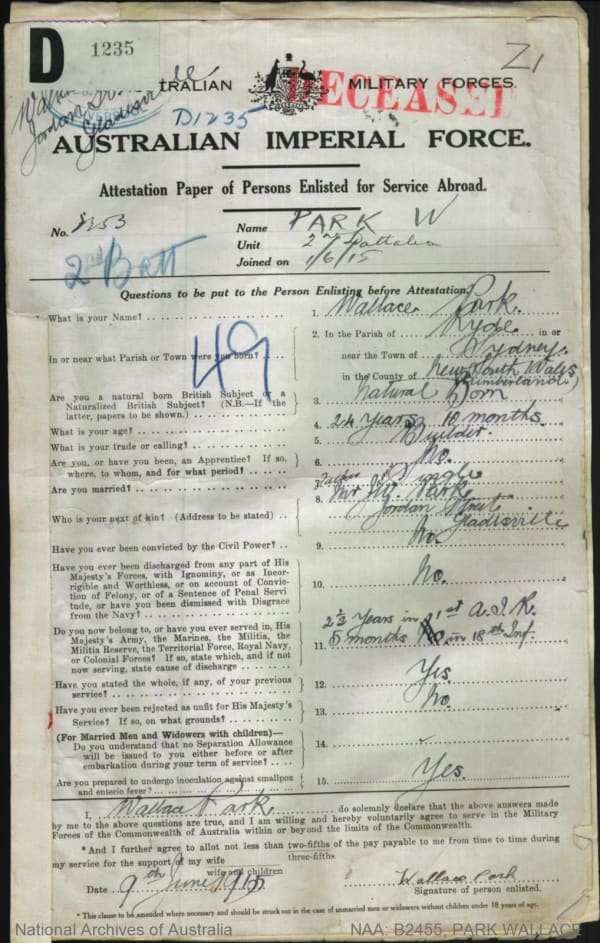 D 1235
Z1
AUSTRALIAN MILITARY FORCES.
DECEASED
Jordan Street
Gladisville
D1235
AUSTRALIAN IMPERIAL FORCE.
Attestation Paper of Persons Enlisted for Service Abroad.
No. Name PARK W
Unit 2nd Battalion
Joined on 1/6/15
2nd Batt
Questions to be put to the Person Enlisting before Attestation.
49
What is your Name? 1. Wallace Park.
In or near what Parish or Town were you born? 2. In the Parish of Ryde in or
near the Town of Sydney.
in the County of New South Wales
(Cumberland)
Are you a natural born British Subject or a
Naturalized British Subject? (N.B.—If the 3. Natural Born
latter, papers to be shown.)
What is your age? 4. 24 years 10 months.
What is your trade or calling? 5. Builder.
Are you, or have you been, an Apprentice? If so,
where, to whom, and for what period? 6. No.
Are you married? 7. Single
Who is your next of kin? (Address to be stated) 8. Father Mr Park
Jordan Street
Gladisville
Have you ever been convicted by the Civil Power? 9. No.
Have you ever been discharged from any part of His
Majesty's Forces, with Ignominy, or as Incor-
rigible and Worthless, or on account of Convic-
tion of Felony, or of a Sentence of Penal Servi- 10. No.
tude, or have you been dismissed with Disgrace
from the Navy?
Do you now belong to, or have you ever served in, His
Majesty's Army, the Marines, the Militia, the 2½ Years in 1st A.I.R.
Militia Reserve, the Territorial Force, Royal Navy, 11. 5 months in 18th Inf.
or Colonial Forces? If so, state which, and if not
now serving, state cause of discharge
Have you stated the whole, if any, of your previous
service? 12. Yes.
Have you ever been rejected as unfit for His Majesty's
Service? If so, on what grounds? 13. No
(For Married Men and Widowers with children)—
Do you understand that no Separation Allowance 14.
will be issued to you either before or after
embarkation during your term of service?
Are you prepared to undergo inoculation against smallpox
and enteric fever? 15. Yes.
I, Wallace Park do solemnly declare that the above answers made
by me to the above questions are true, and I am willing and hereby voluntarily agree to serve in the Military
Forces of the Commonwealth of Australia within or beyond the limits of the Commonwealth.
*And I further agree to allot not less than two-fifths of the pay payable to me from time to time during
three-fifths
my service for the support of my wife
wife and children
Date 9th June 1915 Wallace Park
Signature of person enlisted.
*This clause to be amended where necessary and should be struck out in the case of unmarried men or widowers without children under 18 years of age.
National Archives of Australia NAA: B2455, PARK WALLACE